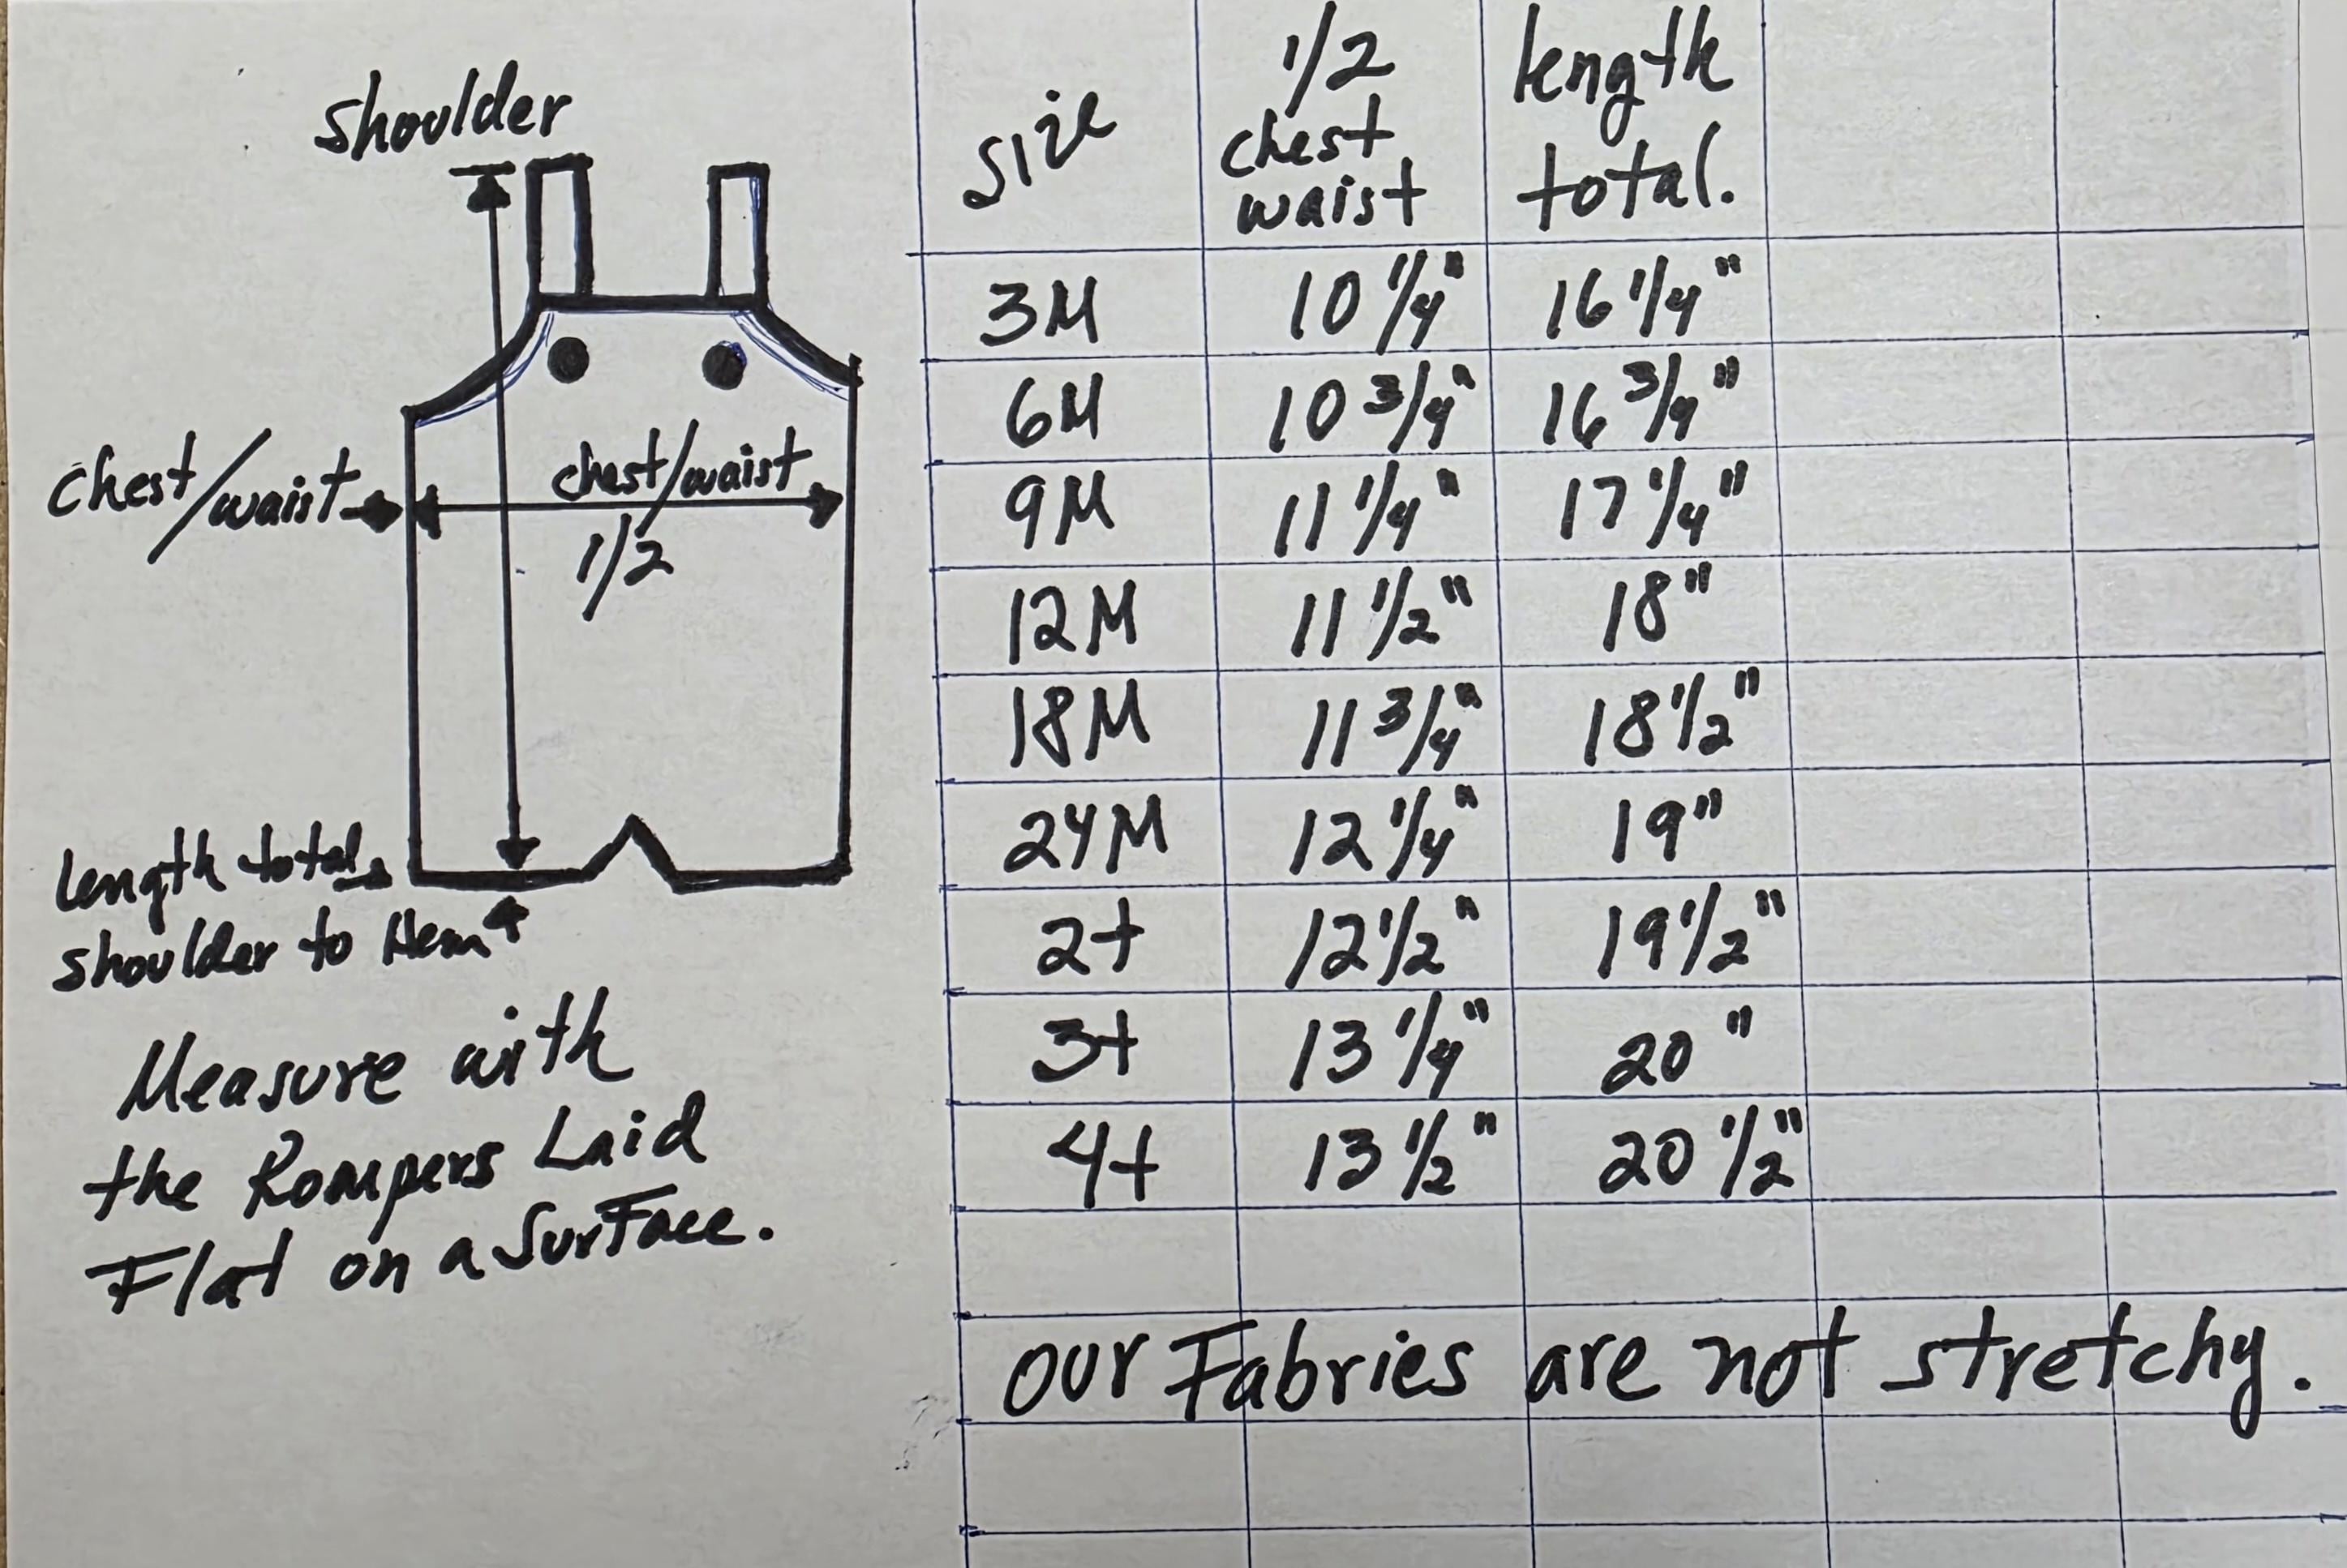 shoulder
chest/waist
chest/waist
1/2
length total
shoulder to Hem
Measure with
the Rompers Laid
Flat on a Surface.
size 1/2 chest waist length total.
3M 10 1/4" 16 1/4"
6M 10 3/4" 16 3/4"
9M 11 1/4" 17 1/4"
12M 11 1/2" 18"
18M 11 3/4" 18 1/2"
24M 12 1/4" 19"
2t 12 1/2" 19 1/2"
3t 13 1/4" 20"
4t 13 1/2" 20 1/2"
our Fabries are not stretchy.